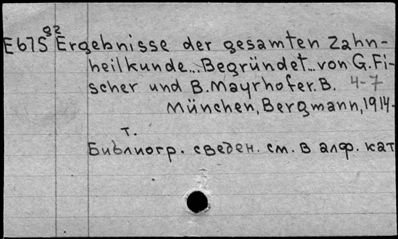 E67S⁸² Ergebnisse der gesamten Zahn-
heilkunde... Begründet... von G. Fi-
scher und B. Mayrhofer. B. 4-7
München, Bergmann, 1914-
т.
Библиогр. сведен. см. в алф. кат